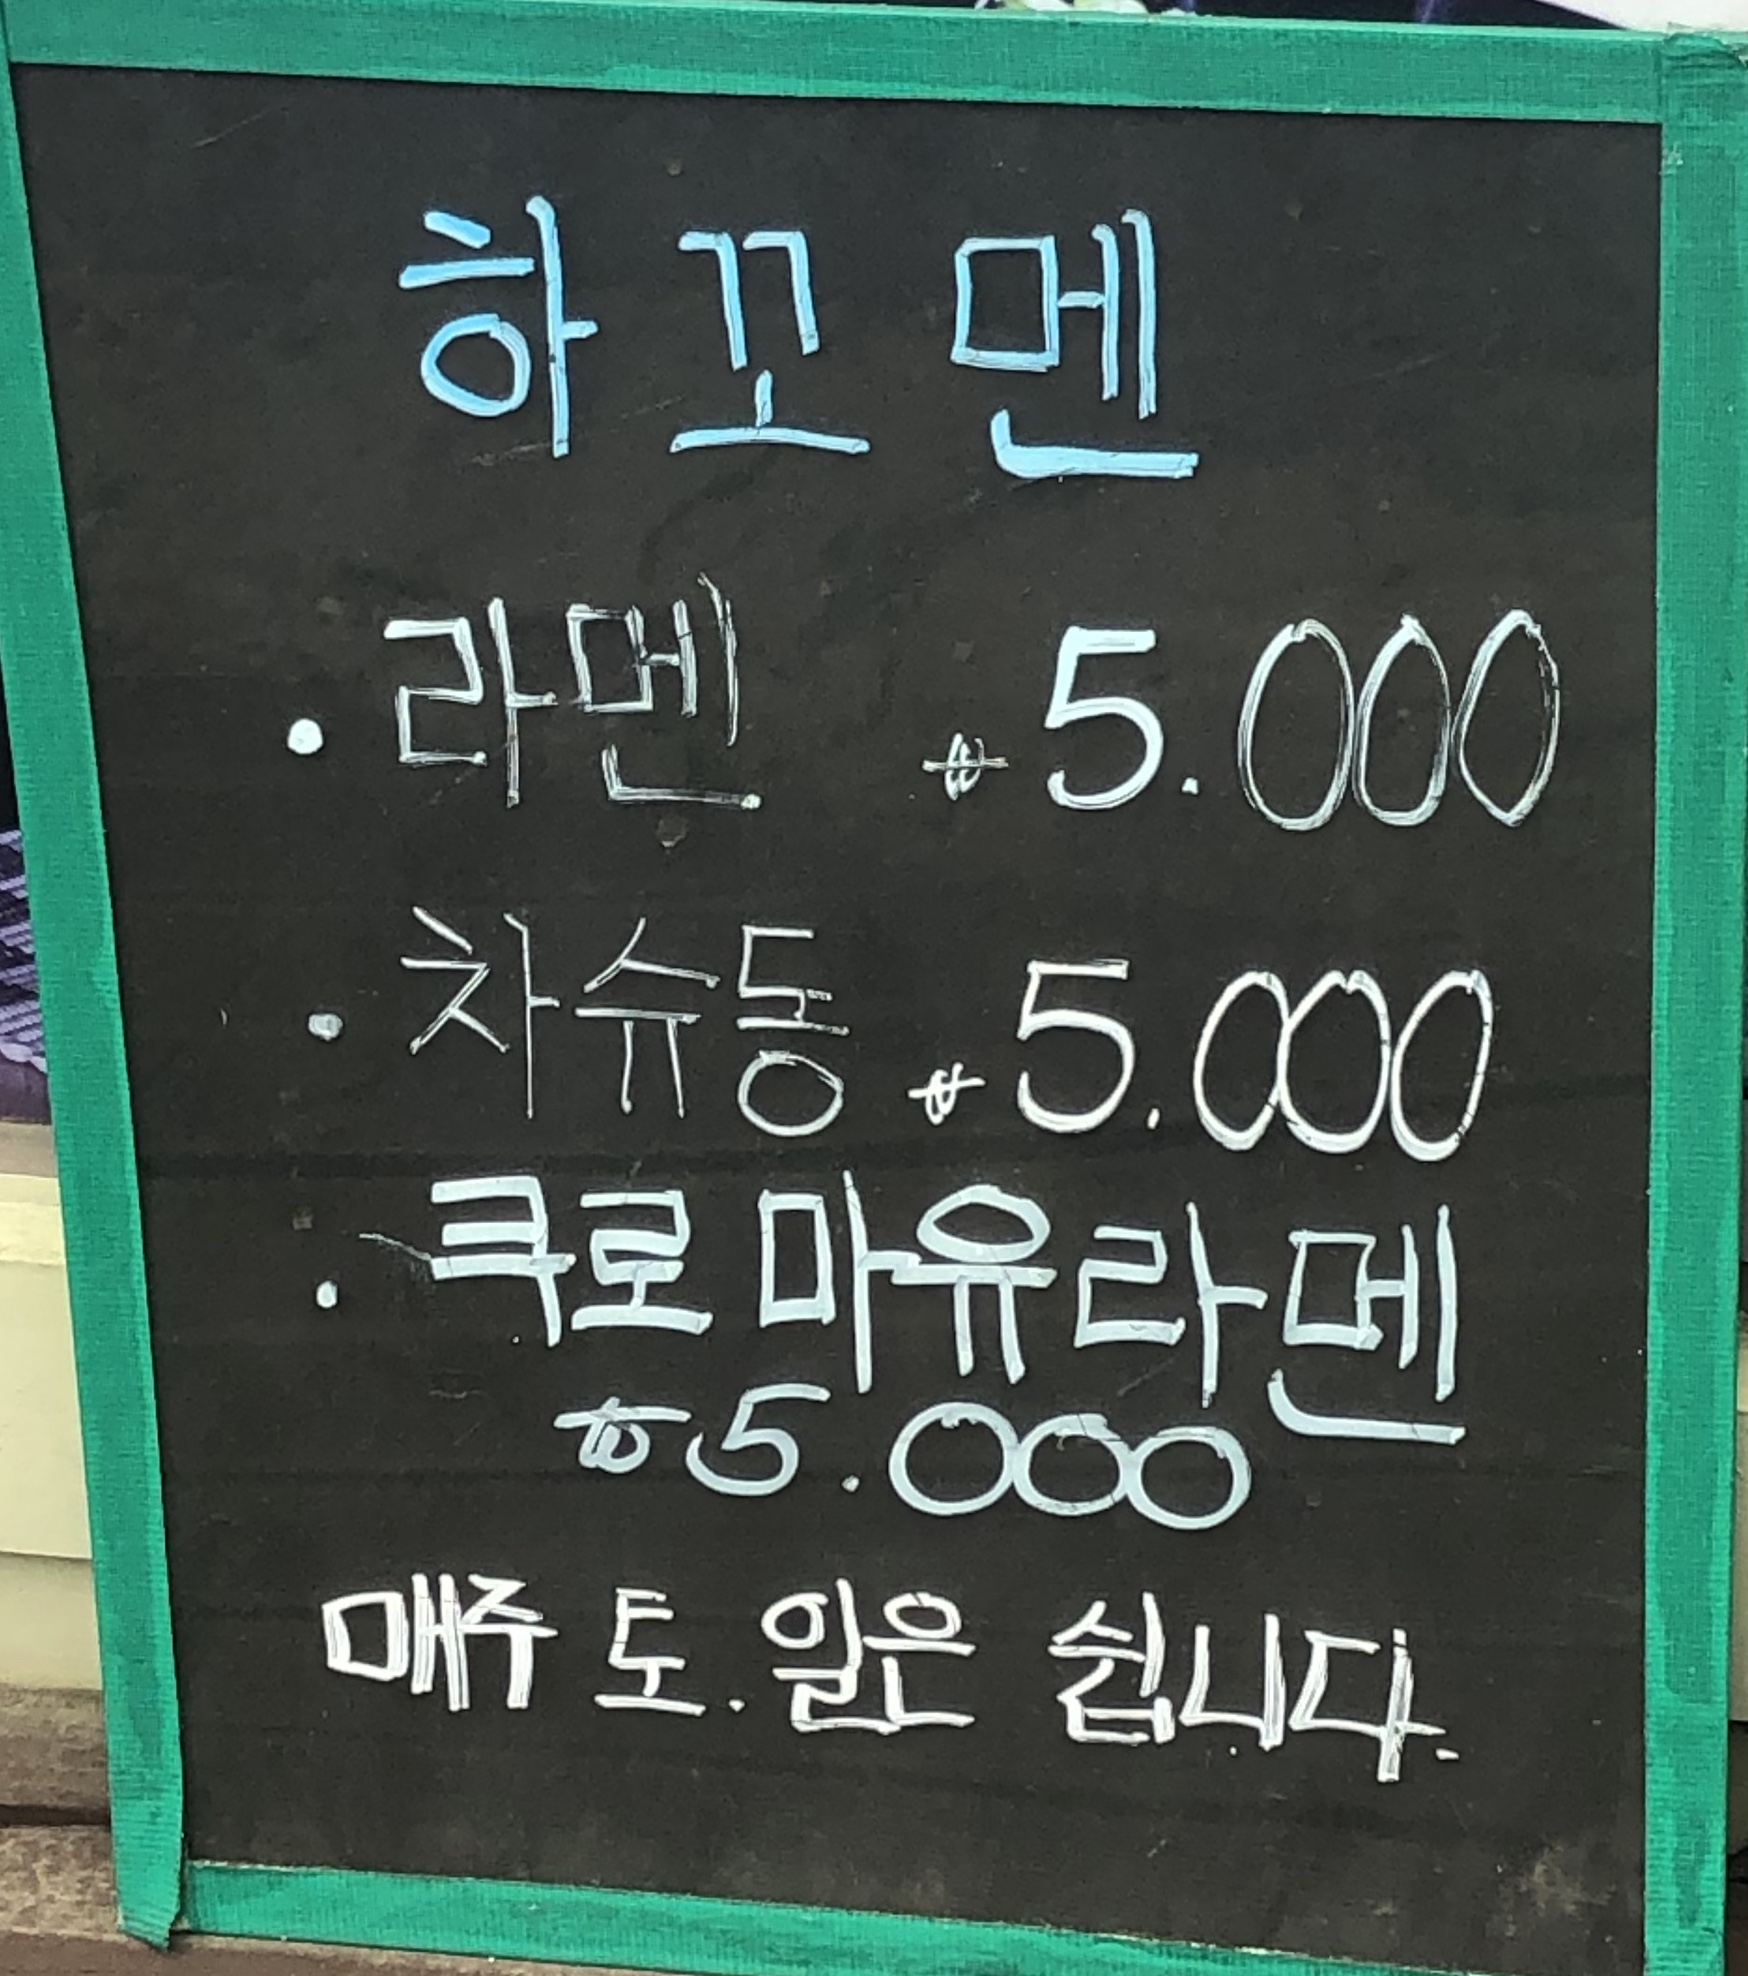 하꼬멘
· 라멘 ₩5.000
· 차슈동 ₩5.000
· 쿠로마유라멘
₩5.000
매주 토.일은 쉽니다.